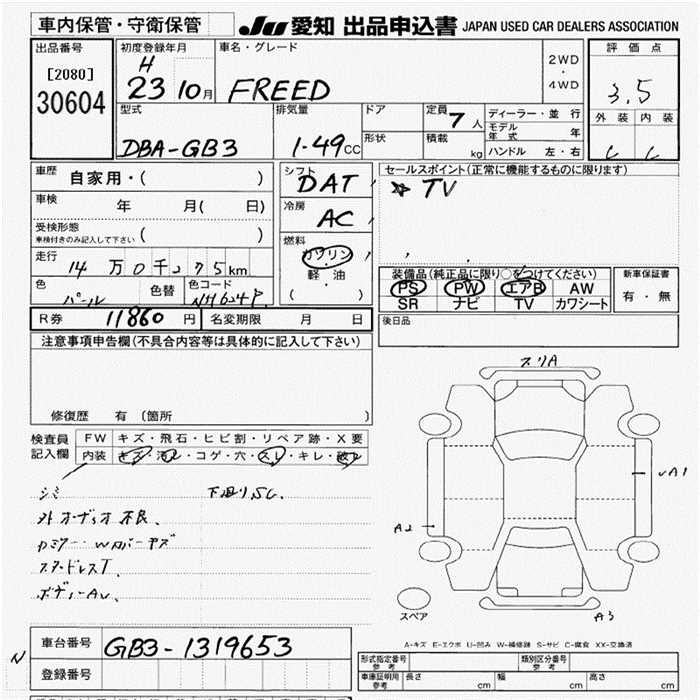 車内保管・守衛保管
JU 愛知 出品申込書 JAPAN USED CAR DEALERS ASSOCIATION
出品番号
[2080]
30604
初度登録年月
H
23 10月
車名・グレード
FREED
2WD
・
4WD
評価点
3.5
外装 内装
C C
型式
DBA-GB3
排気量
1.49CC
ドア
形状
定員
7人
積載
kg
ディーラー・並行
モデル年式 年
ハンドル 左・右
車歴 自家用・( )
車検 年 月( 日)
受検形態
車検付きのみ記入して下さい ( )
走行
14万0千275km
色
パール
色替
色コード
NH624P
シフト
DAT
冷房
AC
燃料
ガソリン
・
軽・油
( )
セールスポイント(正常に機能するものに限ります)
TV
装備品(純正品に限り○をつけてください)
PS PW エアB AW
SR ナビ TV カワシート
新車保証書
有・無
R券 11860円 名変期限 月 日
後日品
注意事項申告欄(不具合内容等は具体的に記入して下さい)
修復歴 有(箇所 )
検査員
記入欄
FW キズ・飛石・ヒビ割・リペア跡・X要
内装 キズ・汚レ・コゲ・穴・スレ・キレ・破レ
シミ 下廻りSC.
外オーディオ不良、
スタッドレスT
スリA
A1
A2
A3
スペア
A-キズ E-エクボ U-凹み W-補修跡 S-サビ C-腐食 XX-交換済
N
車台番号 GB3-1319653
登録番号
形式指定番号
参考
類別区分番号
参考
車庫証明用
参考
長さ cm 幅 cm 高さ cm